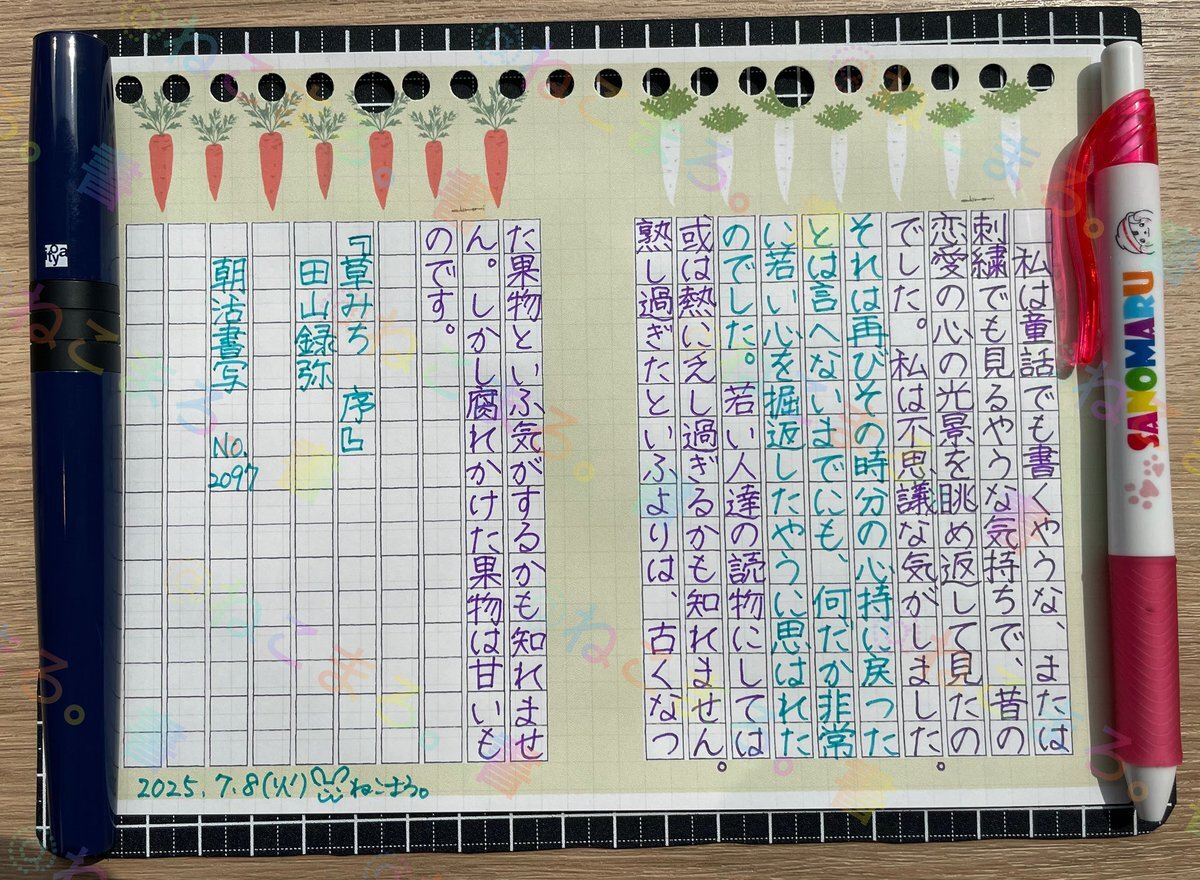 私は童話でも書くやうな、または
刺繍でも見るやうな気持ちで、昔の
恋愛の心の光景を眺め返して見たの
でした。私は不思議な気がしました。
それは再びその時分の心持に戻った
とは言へないまでにも、何だか非常
に若い心を掘返したやうに思はれた
のでした。若い人達の読物にしては
或は熱に乏し過ぎるかも知れません。
熟し過ぎたといふよりは、古くなつ
た果物といふ気がするかも知れませ
ん。しかし腐れかけた果物は甘いも
のです。
『草みち 序』
田山録弥
朝活書写 No.2097
2025.7.8(火)ねこまろ。
SANOMARU
itoya
@ねこまろ。書